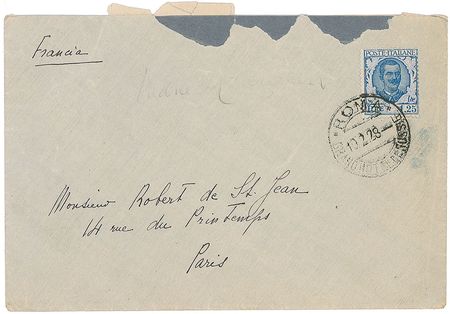 Francia
POSTE ITALIANE
lire 1,25
ROMA
10.2.28
Monsieur Robert de St. Jean
14 rue du Printemps
Paris